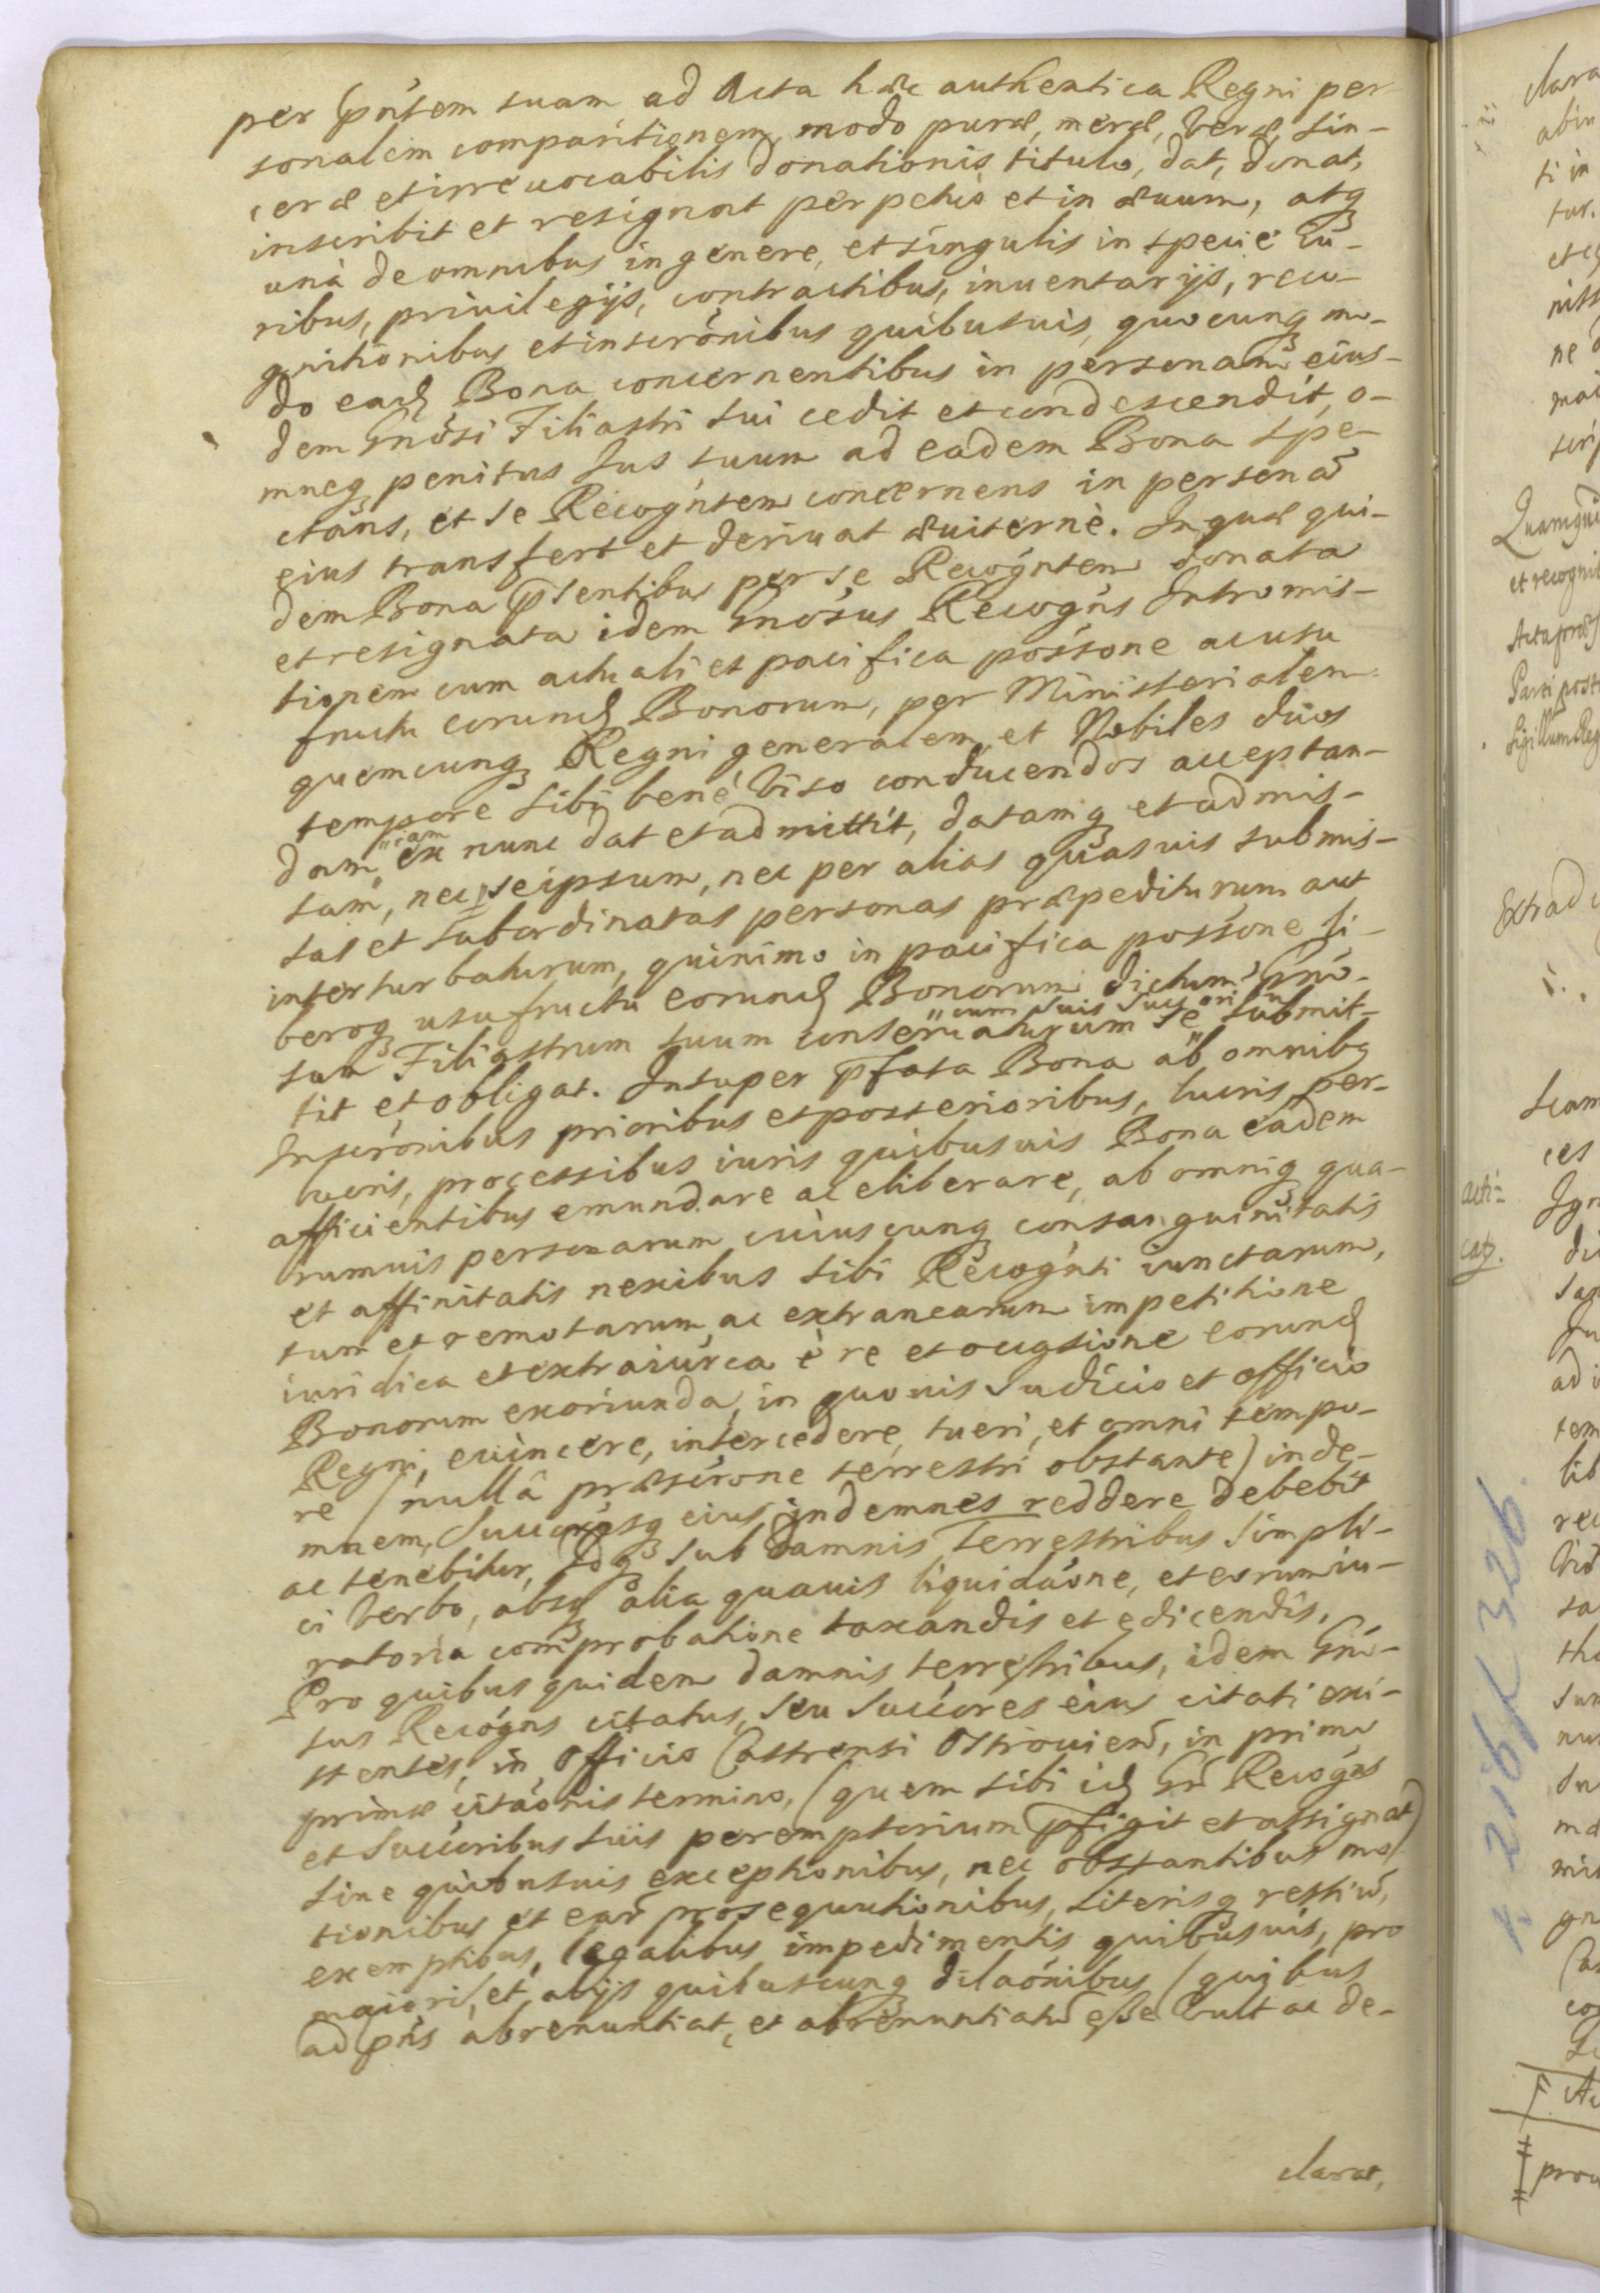 per pntem suam ad Acta hæc authentica Regni per
sonalem comparitionem, modo puræ, meræ, veræ, sin-
ceræ et irreuocabilis donationis titulo, dat, donat,
inscribit et resignat perpetuò et in æuum, atq
unà de omnibus in genere, et singulis in specie iu-
ribus, priuilegijs, contractibus, inuentarijs, reco-
gnitionibus et inscrōnibus quibusuis, quocunq mo-
do ead Bona concernentibus in personam eius-
dem Gnōsi Filiastri sui cedit et condescendit, o-
mneq penitus Ius suum ad eadem Bona spe-
ctans, et se Recogntem concernens in personā
eius transfert et deriuat æuiternè. In quæ qui-
dem Bona p̄sentibus per se Recogntem donata
et resignata idem Gnōsus Recogns Intromis-
tionem cum actuali et pacifica possone ac usu
fructu eorund Bonorum, per Ministerialem
quemcunq Regni generalem, et Nobiles duos
tempore sibi benè viso conducendos acceptan-
dam, iam ex nunc dat et admittit, datamq et admis-
sam, nec seipsum, nec per alias quasuis submis-
sas et subordinatas personas præpediturum aut
interturbaturum, quinimo in pacifica possone li-
beroq usufructu eorund Bonorum dictum Gnō-
sum Filiastrum suum cum suis Succōribus conseruaturum se submit-
tit et obligat. Insuper p̄fata Bona ab omnibq
Inscrōnibus prioribus et posterioribus, lucris, per-
lucris, processibus iuris quibusuis Bona eadem
afficientibus emundare ac eliberare, ab omniq qua-
rumuis personarum cuiuscunq consanguinitatis
et affinitatis nexibus sibi Recognti iunctarum,
tum et remotarum, ac extranearum impetitione
iuridica et extraiurca è re et occasione eorund
Bonorum exoriunda, in quouis Iudicio et officio
Regni, euincere, intercedere, tueri, et omni tempo-
re (nullâ præscrone terrestri obstante) inde-
mnem, Succresq eius indemnes reddere debebit
ac tenebitur, Idq sub damnis terrestribus simpli-
ci verbo, absq alia quauis liquidaōne, et eorum iu-
ratoria comprobatione taxandis et edicendis.
Pro quibus quidem damnis terrestribus, idem Gnō-
sus Recogns citatus, seu Succores eius citati exi-
stentes, in officio Castrensi Ostrouien, in primo
primæ citaōnis termino, (quem sibi id Gn Recogns
et Succoribus suis peremptorium p̄figit et assignat)
sine quibusuis exceptionibus, nec obstantibus mo-
tionibus et ear prosequutionibus, Literisq restium,
exemptibus, legalibus impedimentis quibusuis, pro
maiori, et alijs quibuscunq dilaōnibus (quibus
ad pns abrenuntiat, et abrenuntiatū esse vult ac de-
clarat,